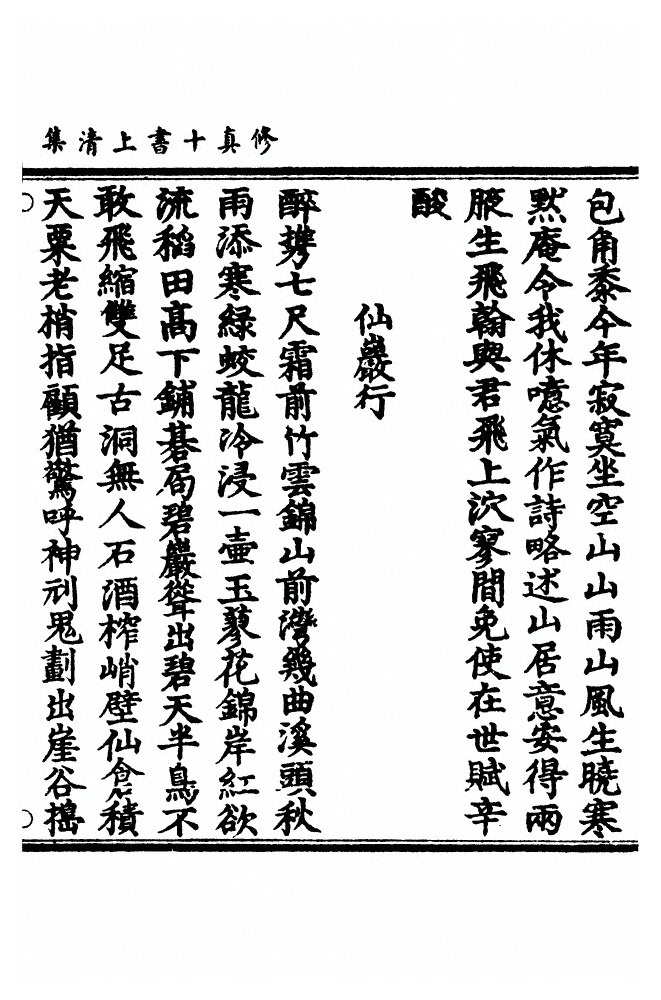 修真十書上清集
包角黍今年寂寞坐空山山雨山風生曉寒
默庵令我休噫氣作詩略述山居意安得兩
腋生飛翰與君飛上泬寥間免使在世賦辛
酸
仙巖行
醉携七尺霜前竹雲錦山前灣幾曲溪頭秋
雨添寒綠蛟龍冷浸一壷玉蓼花錦岸紅欲
流稻田髙下鋪碁局碧巖聳出碧天半鳥不
敢飛縮雙足古洞無人石酒榨峭壁仙倉積
天粟老梢指顧猶驚呼神刓鬼劃出崖谷搗